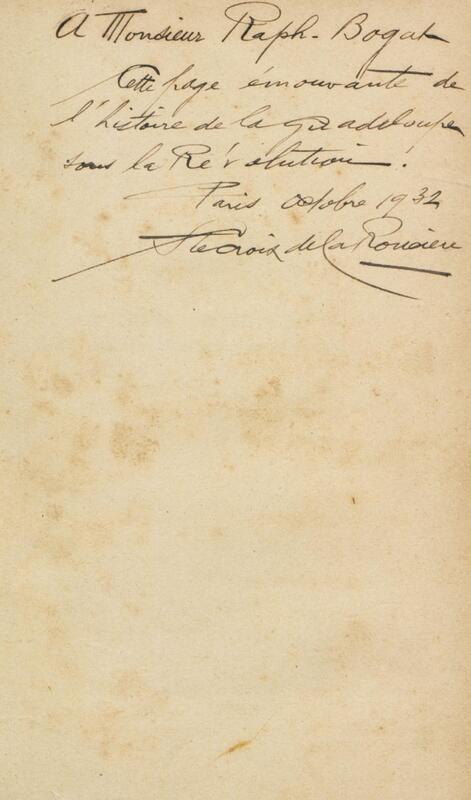 A Monsieur Raph. Bogat
Cette page émouvante de
l'histoire de la Guadeloupe
sous la Révolution !
Paris octobre 1932
Ste Croix de la Roncière